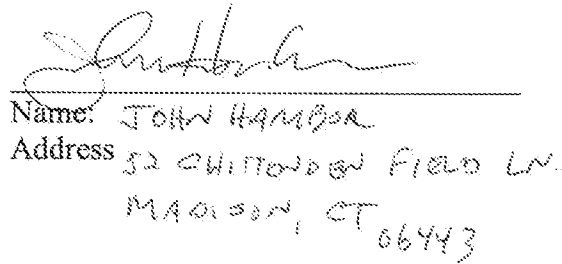 Name: JOHN HAMBOR
Address 52 CHITTENDEN FIELD LN.
MADISON, CT
06443